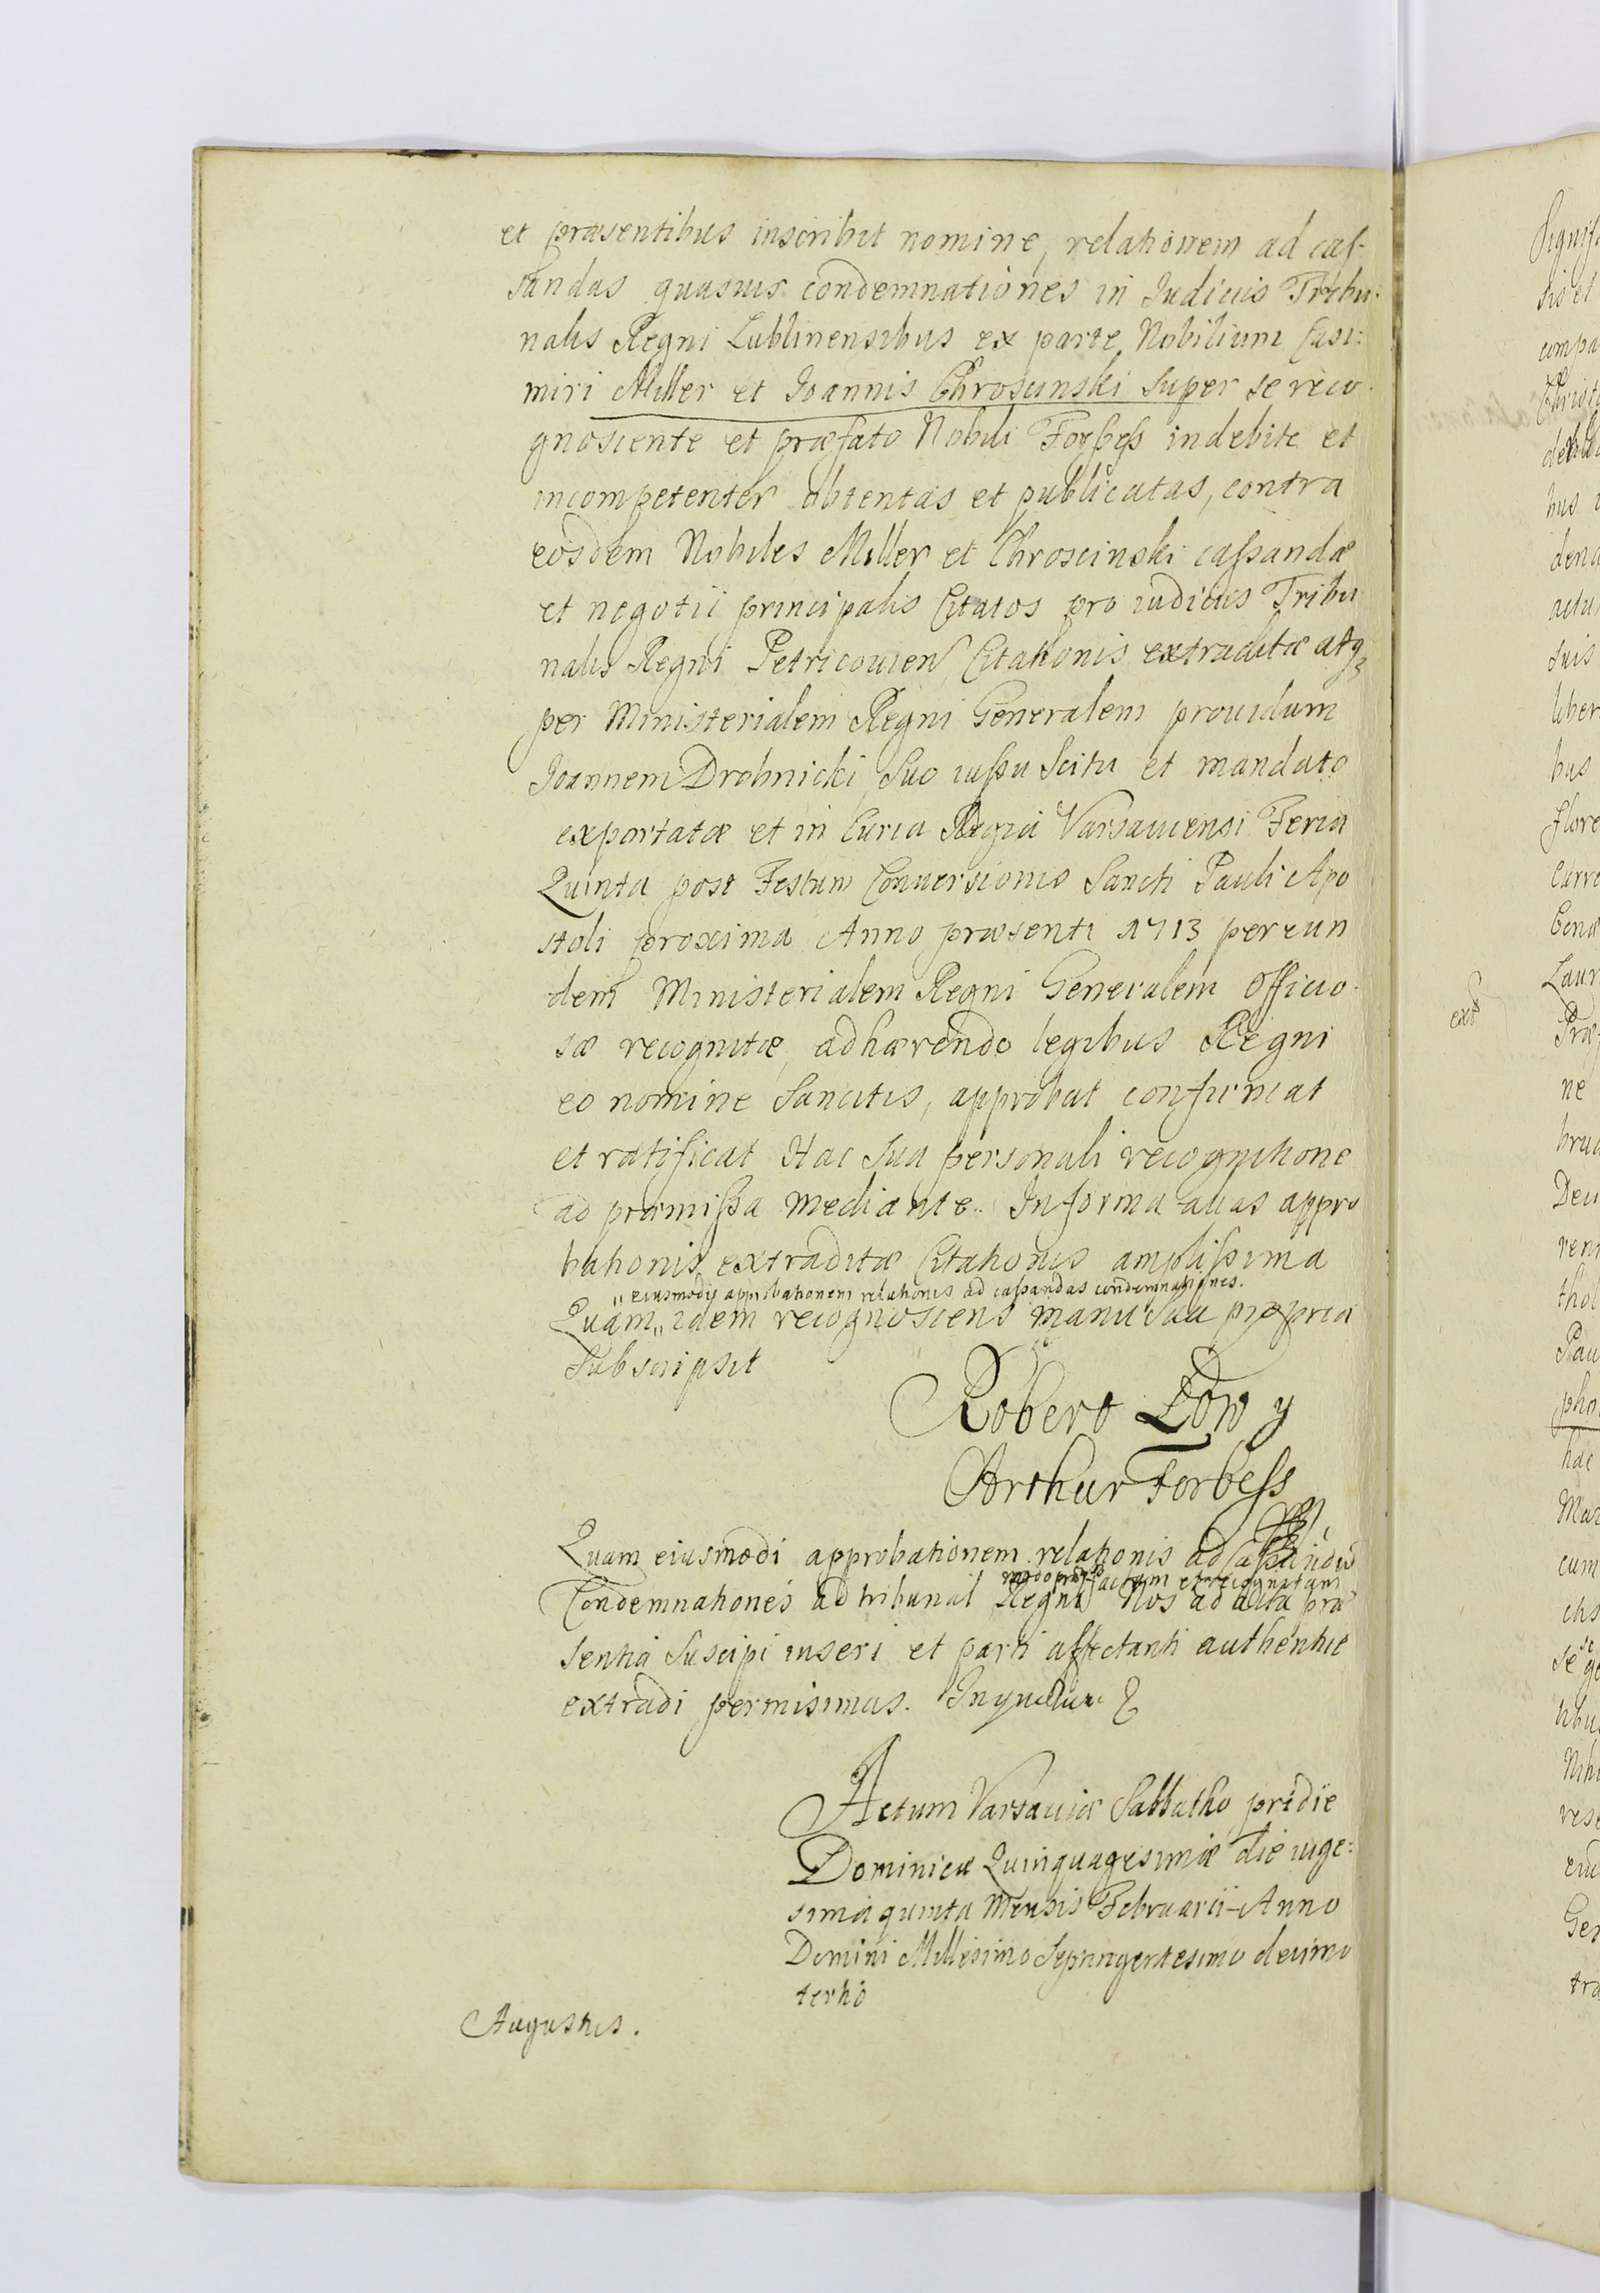 et præsentibus inscribit nomine, relationem ad cas-
sandas quasuis condemnationes in Iudicijs Tribu:
nalis Regni Lublinensibus ex parte Nobilium Casi:
miri Miller et Ioannis Chroscinski super se reco
gnoscente et præfato Nobili Forbess indebite et
incompetenter obtentas et publicatas, contra
eosdem Nobiles Miller et Chroscinski cassandæ
et negotii principalis Citatos pro iudicijs Tribu
nalis Regni Petricouien Citationis extraditæ atq3
per Ministerialem Regni Generalem prouidum
Ioannem Drobnicki, suo iussu scitu et mandato
exportatæ et in Curia Regia Varsauiensi Feria
Quinta post Festum Conuersionis Sancti Pauli Apo
stoli proxima Anno præsenti 1713 per eun
dem Ministerialem Regni Generalem Officio
sæ recognitæ, adhærendo legibus Regni
eo nomine sancitis, approbat confirmat
et ratificat Hac sua personali recognitione
ad præmissa mediante. In forma alias appro
bationis extraditæ Citationis amplissima
" eiusmodj approbationem relationis ad cassandas condemnationes.
Quam " idem recognoscens manu sua propria
subscripsit
Robert Low y
Arthur Forbess
Quam eiusmodi approbationem relationis ad cassandas
factam et recognitam
Condemnationes ad tribunal Regni Nos ad acta præ
sentia suscipi inseri et parti affectanti authentice
extradi permisimus. In quorum
Actum Varsauiæ Sabbatho pridie
Dominicæ Quinquagesimæ die uige:
sima quinta Mensis Februarii Anno
Domini Millesimo Septingentesimo decimo
tertio
Augustus.
ext